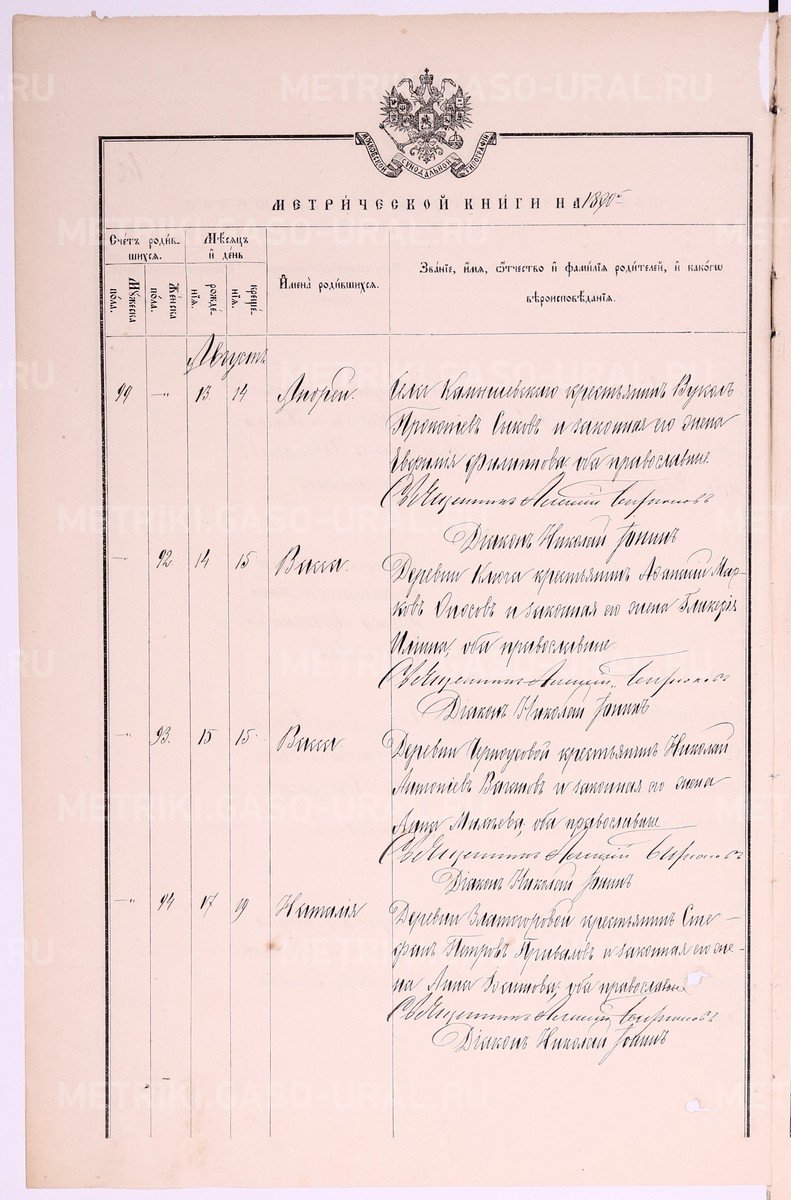 METRIKI.GASO-URAL.RU
МОСКОВСКОЙ СѴНОДАЛЬНОЙ ТИПОГРАФІИ
МЕТРИ́ЧЕСКОЙ КНИ́ГИ НА 1890 г.
Сче́тъ роди́в-
шихся.
Мѣ́сяцъ
и҆ де́нь
Мꙋ́жеска
по́ла.
Же́нска
по́ла.
рожде́-
нїя.
креще́-
нїя.
И҆мена̀ роди́вшихся.
Зва́нїе, и҆́мя, ѻ҆́тчество и҆ фами́лїя роди́телей, и҆ како́гѡ
вѣроисповѣ́данїя.
Августъ
99 —„— 13 14 Андрей. Села Камышевскаго крестьянинъ Вуколъ
Прокопіевъ Сысковъ и законная его жена
Евфимія Филиппова оба православные
Священникъ Алексій Бирюковъ
Діаконъ Николай Іонинъ
—„— 92 14 15 Васса. Деревни Ключа крестьянинъ Афанасій Мар-
ковъ и законная его жена Гликерія
Ильина, оба православные
Священникъ Алексій Бирюковъ
Діаконъ Николай Іонинъ
—„— 93. 15 15 Васса. Деревни Черноусовой крестьянинъ Николай
Антоніевъ и законная его жена
Анна оба православные
Священникъ Алексій Бирюковъ
Діаконъ Николай Іонинъ
—„— 94 17 19 Наталія Деревни Златогоровой крестьянинъ Сте-
фанъ Петровъ Приваловъ и законная его же-
на Анна оба православные
Священникъ Алексій Бирюковъ
Діаконъ Николай Іонинъ